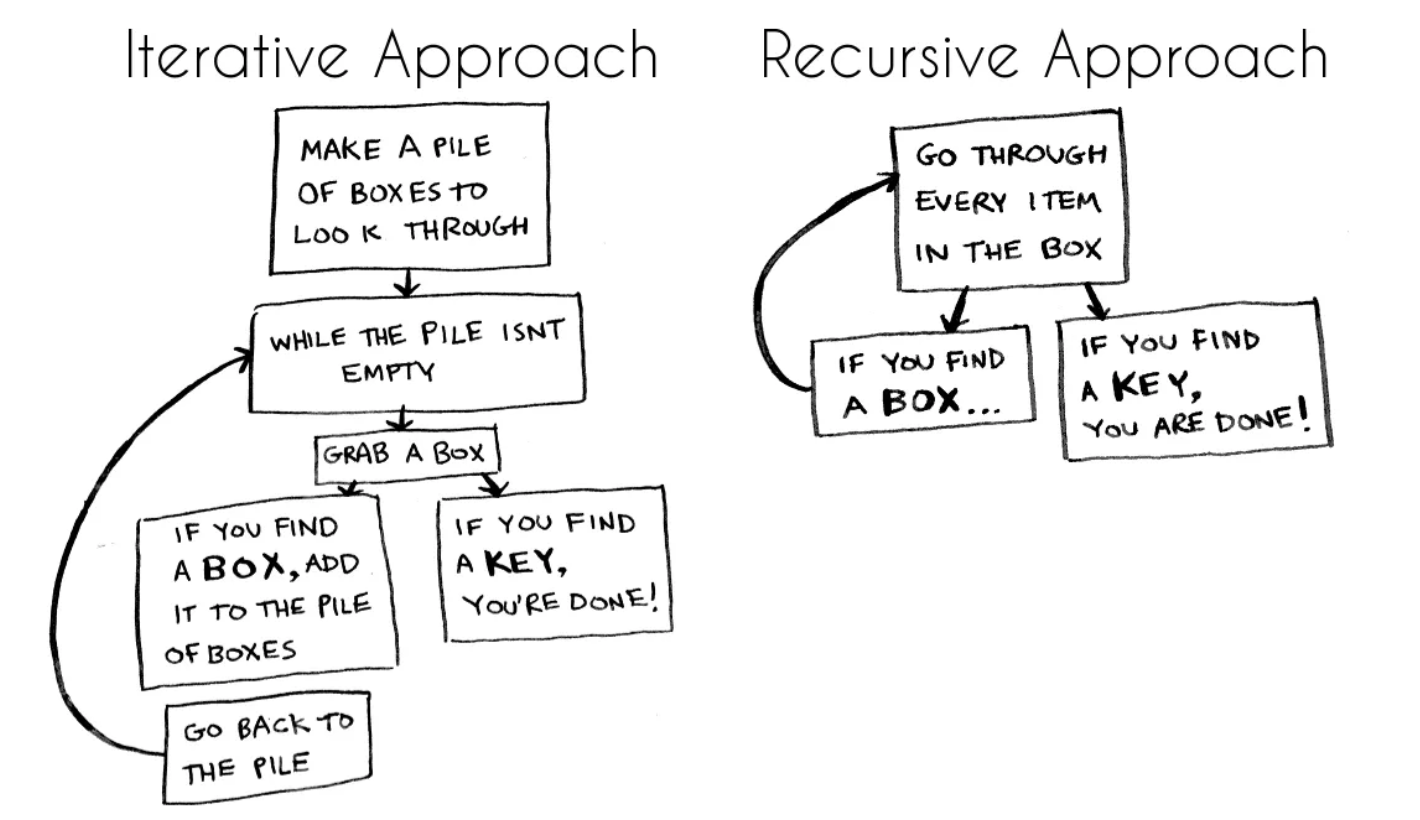 Iterative Approach
MAKE A PILE
OF BOXES TO
LOOK THROUGH
WHILE THE PILE ISNT
EMPTY
GRAB A BOX
IF YOU FIND
A BOX, ADD
IT TO THE PILE
OF BOXES
IF YOU FIND
A KEY,
YOU'RE DONE!
GO BACK TO
THE PILE
Recursive Approach
GO THROUGH
EVERY ITEM
IN THE BOX
IF YOU FIND
A BOX...
IF YOU FIND
A KEY,
YOU ARE DONE!